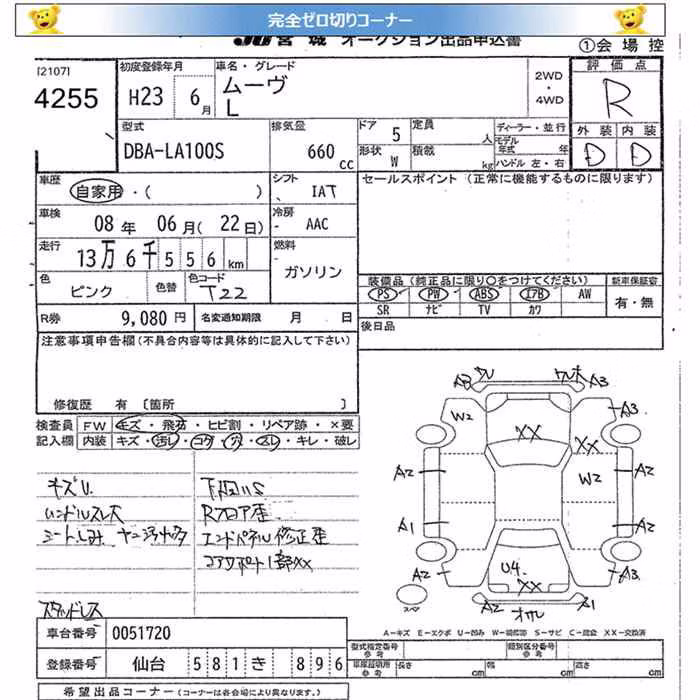 完全ゼロ切りコーナー
JU 宮城 オークション出品申込書
①会場控
[2107]
4255
初度登録年月
H23 6月
車名・グレード
ムーヴ
L
2WD
・
4WD
評価点
R
型式
DBA-LA100S
排気量
660 CC
ドア 5
定員 人
形状 W
積載 kg
ディーラー・並行
モデル年式 年
ハンドル 左・右
外装 内装
D D
車歴
自家用・( )
シフト
IAT
セールスポイント (正常に機能するものに限ります)
車検
08年 06月(22日)
冷房
AAC
走行
13万6千556km
燃料
ガソリン
色
ピンク
色替
色コード
T22
装備品(純正品に限り○をつけてください)
新車保証書
PS PW ABS エアB AW
SR ナビ TV カワ
有・無
R券 9,080円
名変通知期限 月 日
後日品
注意事項申告欄(不具合内容等は具体的に記入して下さい)
修復歴 有 〔箇所 〕
検査員記入欄
FW キズ・飛石・ヒビ割・リペア跡・×要
内装 キズ・汚レ・コゲ・穴・スレ・キレ・破レ
キズU
ハンドルスレ大
シートしみ
下回りS
Rフロア歪
エンドパネル修正歪
コアサポート1部XX
スタッドレス
A3
A3
W2
XX
XX
A3
A2
W2
A2
A1
A2
A2
U4
XX
A3
スペア
A2
A1
A-キズ E-エクボ U-凹み W-補修跡 S-サビ C-腐食 XX-交換済
車台番号 0051720
登録番号 仙台 581 き 896
型式指定番号
参考
類別区分番号
参考
車庫証明用
参考
長さ 幅 高さ
希望出品コーナー(コーナーは各会場により異なります。)